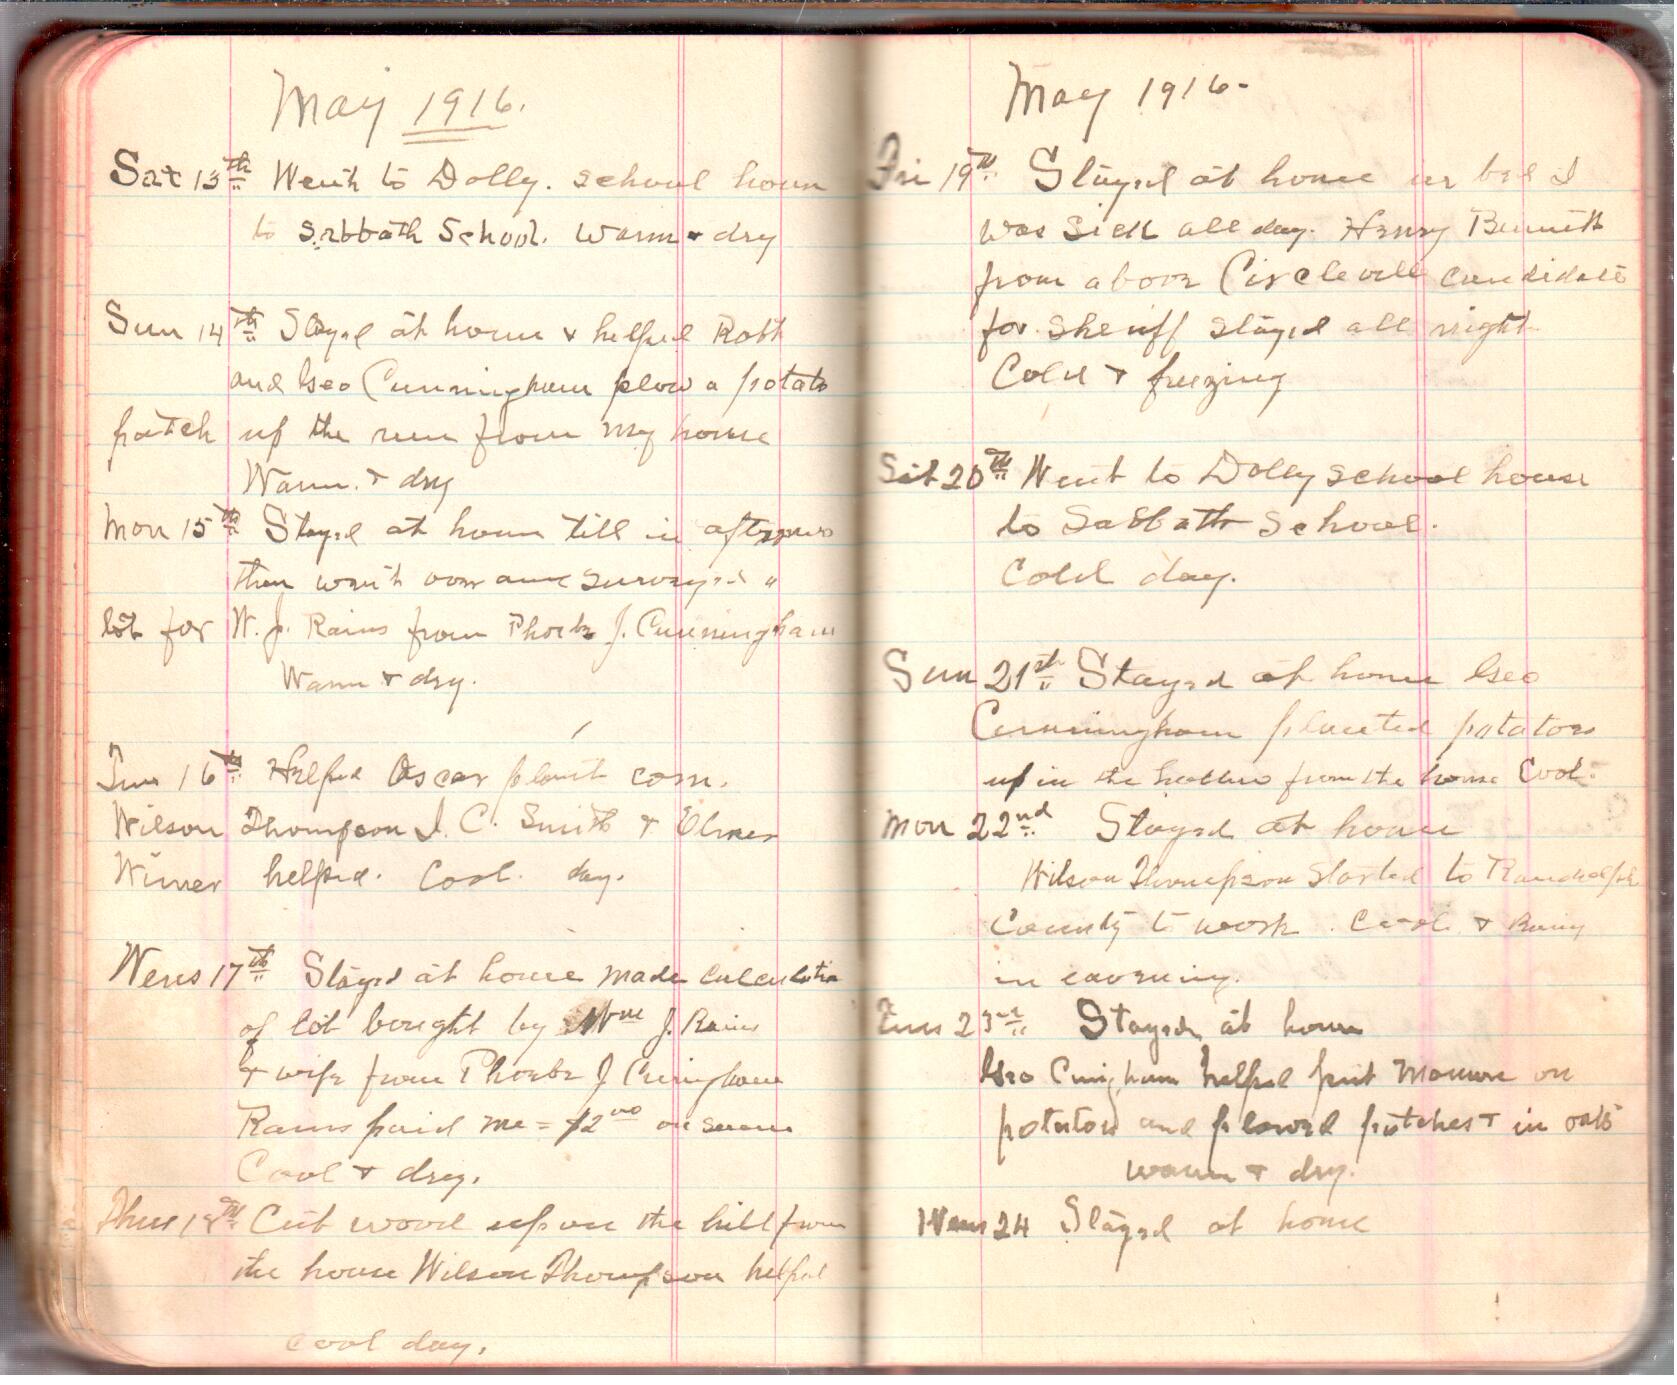 May 1916.
Sat 13th Went to Dolly. school hous
to Sabbath School. Warm & dry
Sun 14th Stayed at home & helped Robt
and Geo Cunningham plow a potato
patch up the run from my house
Warm. & dry
Mon 15th Stayed at home till in
then went over and surveyed a
lot for W. J. Rains from Phoebe J. Cunningham
Warm & dry.
Tues 16th Helped Oscar plant corn.
Wilson Thompson J. C. Smith & Elmer
Wimer helped. Cool. day.
Wens 17th Stayed at home made calculation
of lot bought by Wm J. Rains
& wife from Phoebe J Cuningham
Rains paid me = $2.00 on
Cool & dry.
Thur 18th Cut wood up on the hill from
the house Wilson Thompson helped
cool day.
May 1916-
Fri 19th Stayed at home in bed I
was sick all day. Henry Bennett
from above Circleville candidate
for sheriff stayed all night.
Cold & freezing
Sat 20th Went to Dolly school house
to Sabbath School.
Cold day.
Sun 21st Stayed at home Geo
Cunningham planted potatoes
up in the hollow from the house Cool.
Mon 22nd Stayed at home
Wilson Thompson started to Randolph
County to work. Cool & Rainy
in eavening.
Tues 23rd Stayed at home
Geo Cuningham helped put Manure on
potatoes and plowed patches & in oats
warm & dry.
Wens 24 Stayed at home